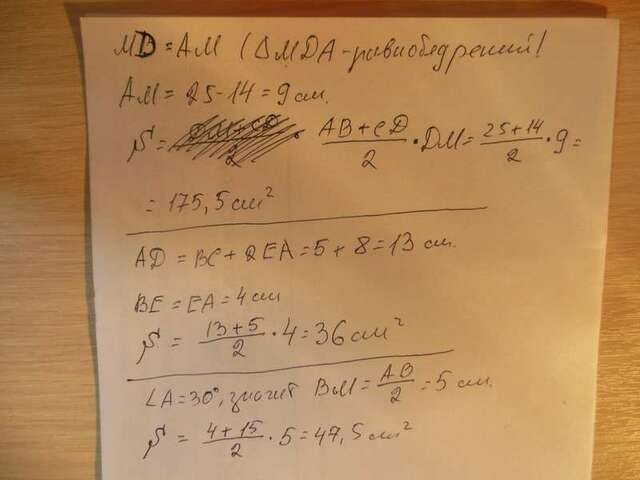 MD = AM (ΔMDA - равнобедрений!
AM = 25 - 14 = 9 см.
S = (AB + CD)/2 · DM = (25 + 14)/2 · 9 =
= 175,5 см²
AD = BC + 2EA = 5 + 8 = 13 см.
BE = EA = 4 см
S = (13 + 5)/2 · 4 = 36 см²
∠A = 30°, значит BM = AB/2 = 5 см.
S = (4 + 15)/2 · 5 = 47,5 см²